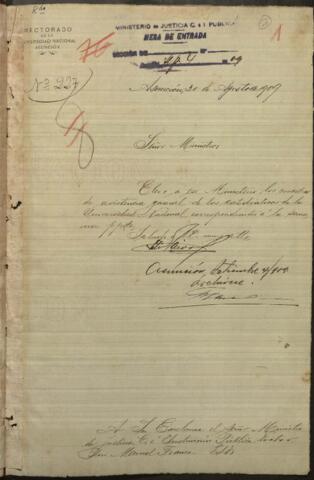 RECTORADO
DE LA
UNIVERSIDAD NACIONAL
ASUNCIÓN
MINISTERIO DE JUSTICIA C. é I. PUBLICA
MESA DE ENTRADA
SECCIÓN DE Nº
1
Nº 227
Asunción, 30 de Agosto de 1909
Señor Ministro
Elevo á su Ministerio las
de asistencia general de los catedráticos de la
Universidad Nacional correspondientes á la
Saluda á
Asunción, Setiembre 4/909
Archívese.
A Su Excelencia el Señor Ministro
de Justicia, C. é Instrucción Pública
Don Manuel Franco